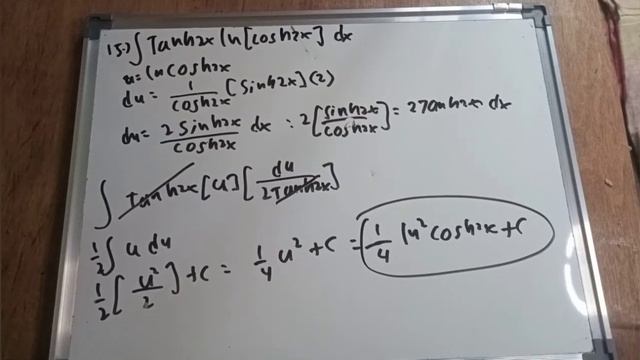 15.) ∫ Tanh2x ln[cosh2x] dx
u = ln cosh2x
du = 1/cosh2x [sinh2x](2)
du = 2 sinh2x/cosh2x dx : 2[sinh2x/cosh2x] = 2Tanh2x dx
∫ Tanh2x [u] [du/2Tanh2x]
1/2 ∫ u du
1/2 [u²/2] + C = 1/4 u² + C = 1/4 ln² cosh2x + C